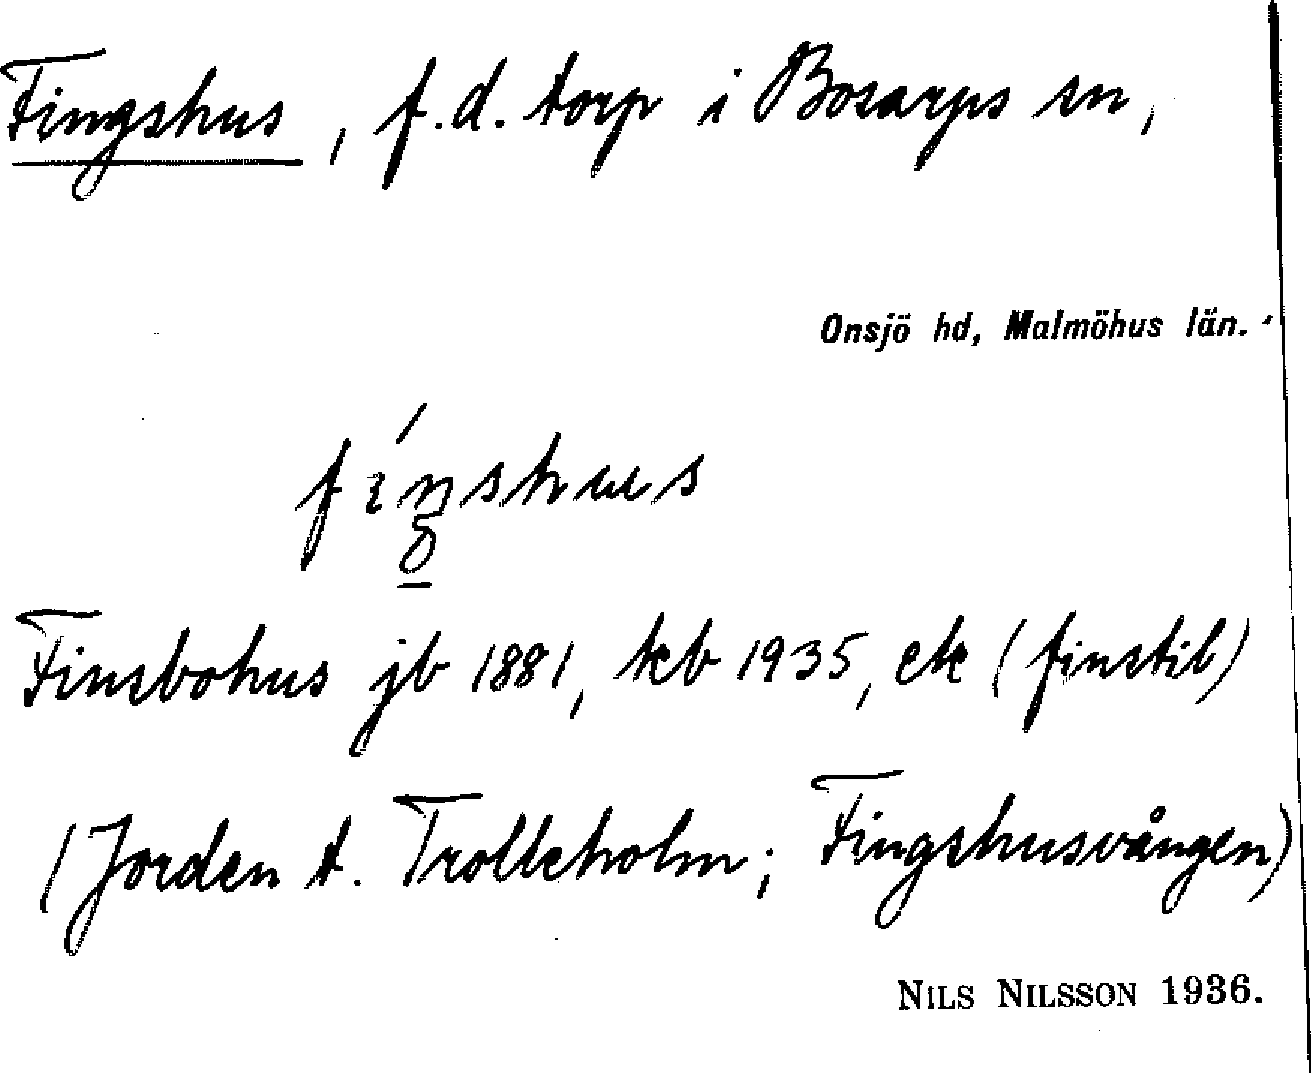 Fingshus, f.d. torp i Bosarps sn,
Onsjö hd, Malmöhus län.
Finsbohus jb 1881, kb 1935, ek (finstil)
(Jorden t. Trolleholm; Fingshusvången)
NILS NILSSON 1936.